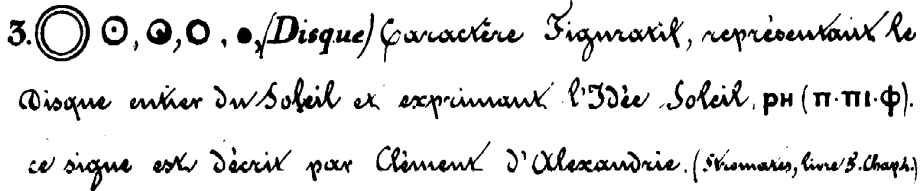 3. ◎ ☉, ○, ○, ●, (Disque) Caractère Figuratif, représentant le
Disque entier du Soleil et exprimant l'Idée Soleil, ⲣⲏ (ⲡ·ⲡⲓ·ⲫ).
ce signe est décrit par Clément d'Alexandrie. (Stromates, livre 5. Chap4.)